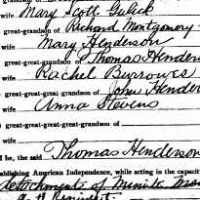 wife Mary Scott Gulick
great-grandson of Richard Montgomery
wife Mary Henderson
great-great-grandson of Thomas Hender
wife Rachel Burrowes
great-great-great-grandson of John Hender
wife Anna Stevens
great-great-great-great-grandson of
wife
I be, the said Thomas Henderson
stablishing American Independence, while acting in the capacity
detachments of Minute Men